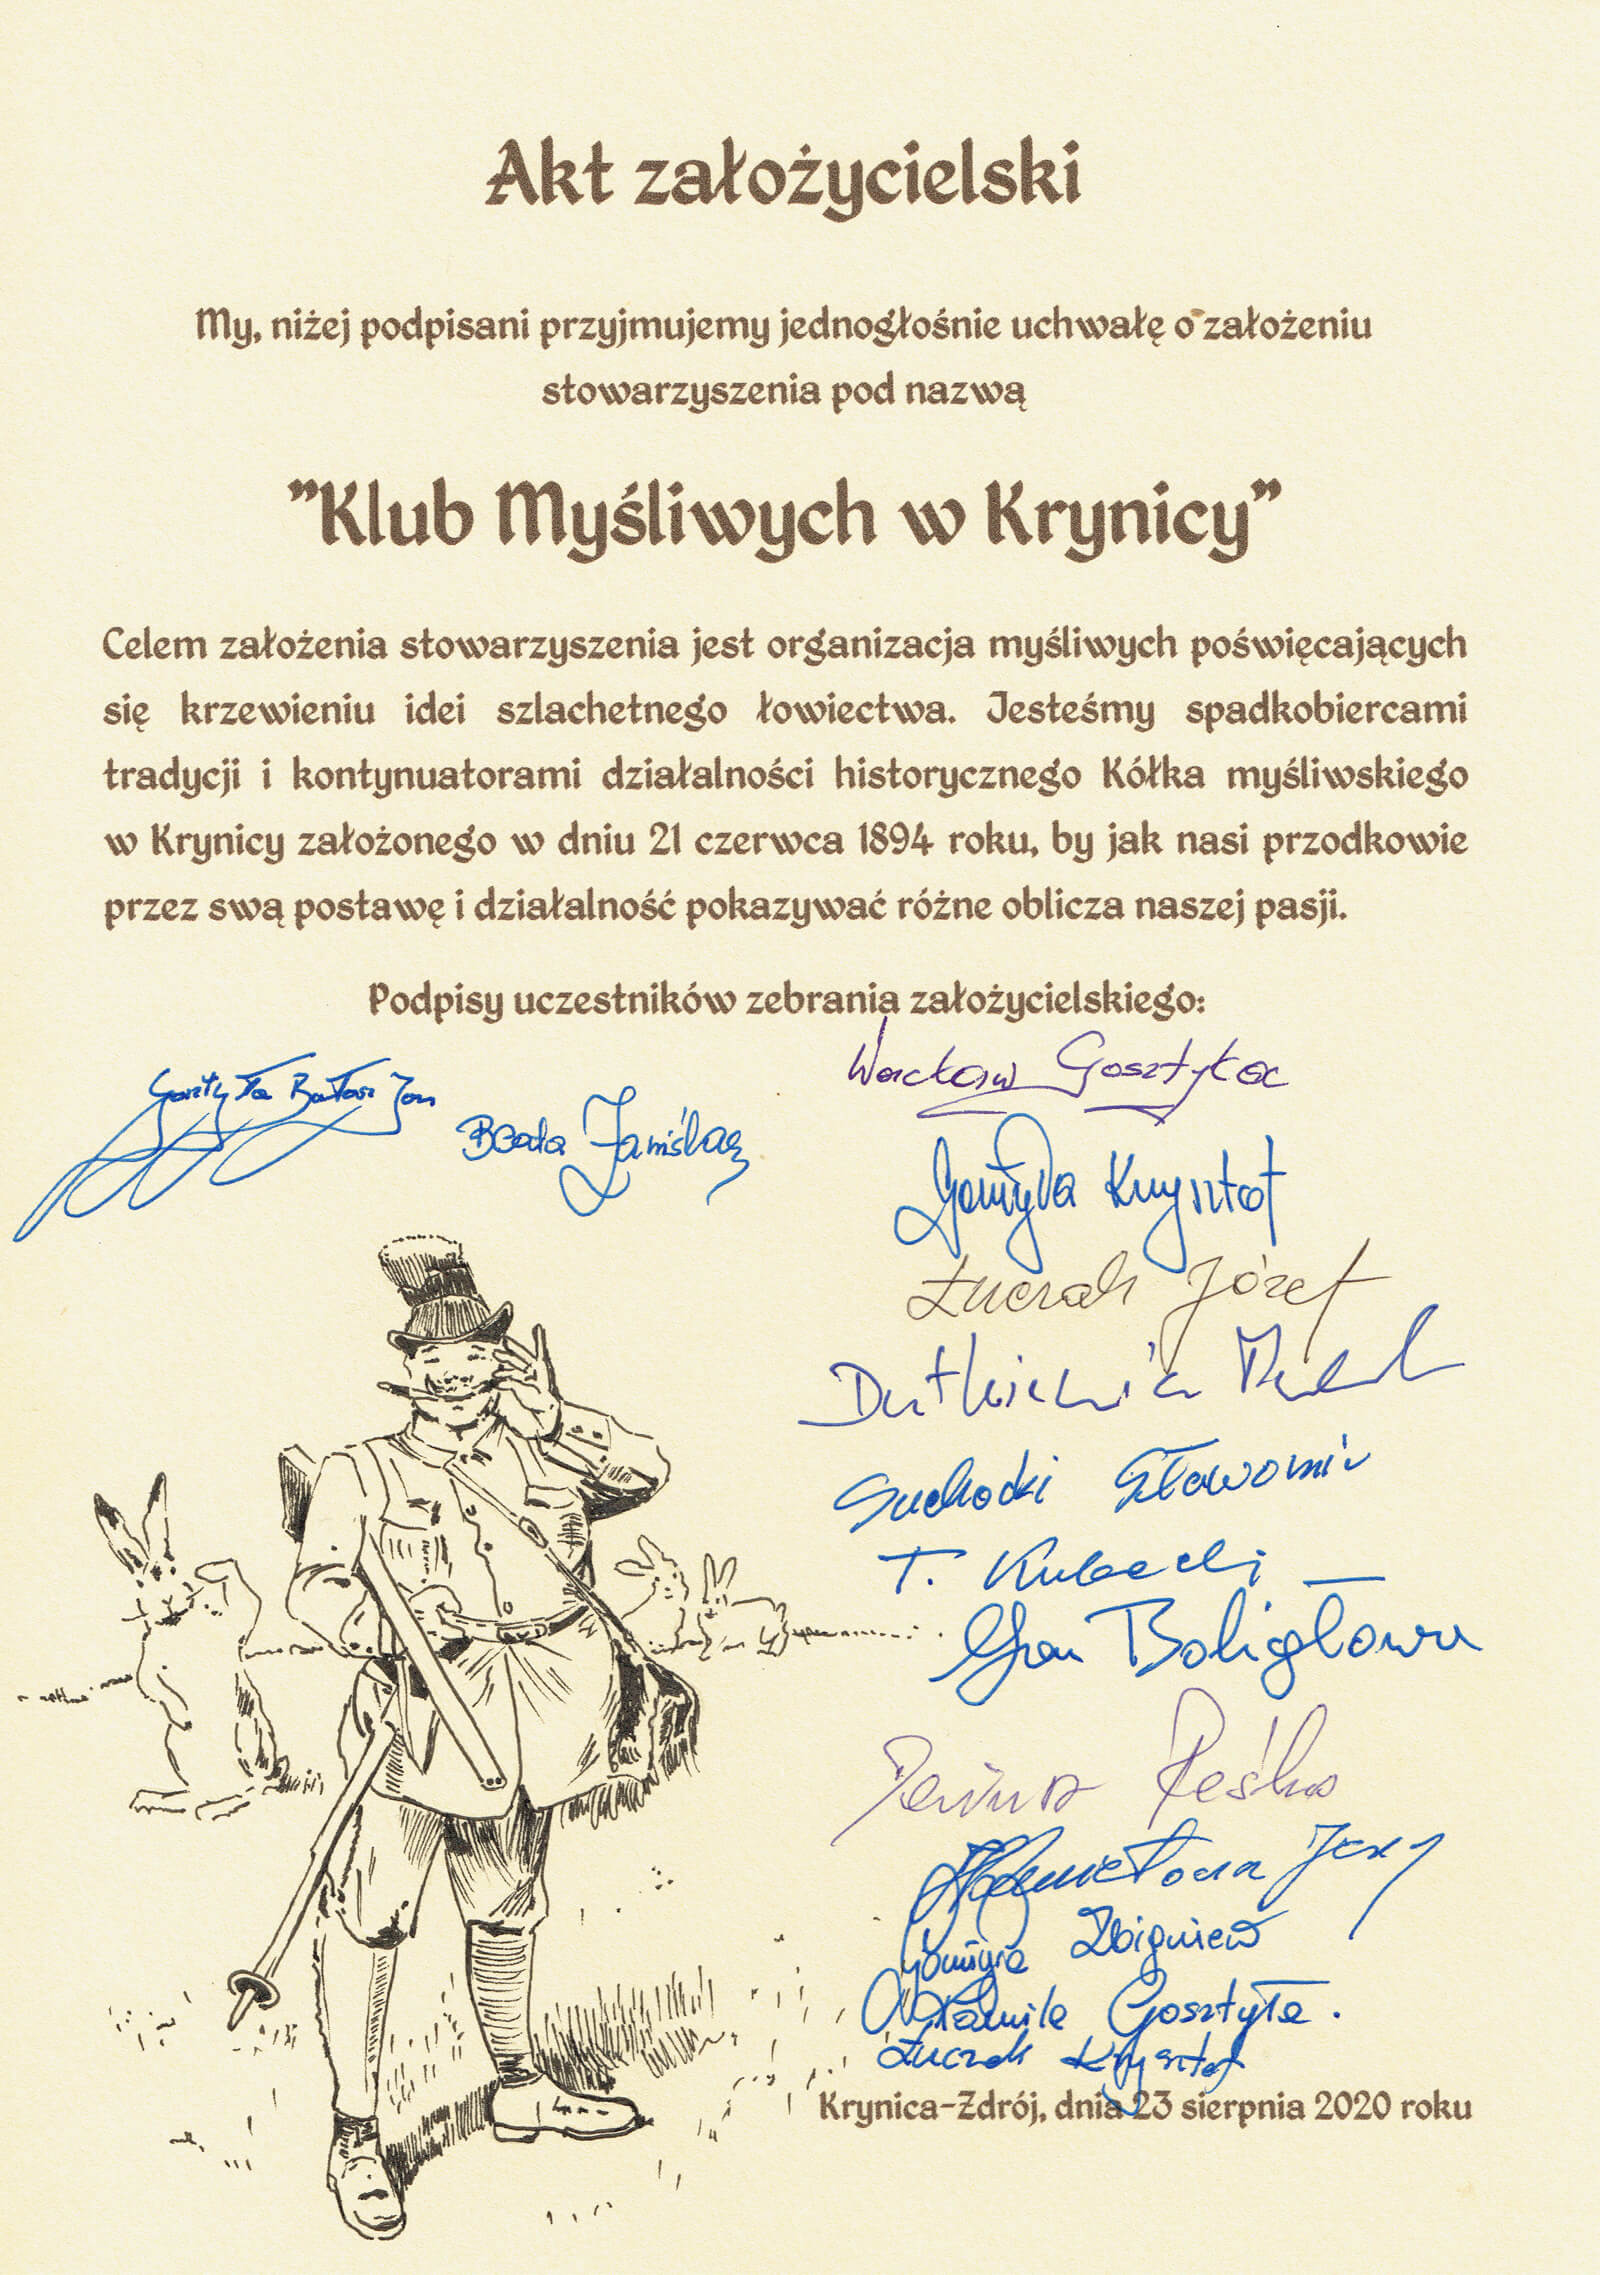 Akt założycielski
My, niżej podpisani przyjmujemy jednogłośnie uchwałę o założeniu
stowarzyszenia pod nazwą
"Klub Myśliwych w Krynicy"
Celem założenia stowarzyszenia jest organizacja myśliwych poświęcających
się krzewieniu idei szlachetnego łowiectwa. Jesteśmy spadkobiercami
tradycji i kontynuatorami działalności historycznego Kółka myśliwskiego
w Krynicy założonego w dniu 21 czerwca 1894 roku, by jak nasi przodkowie
przez swą postawę i działalność pokazywać różne oblicza naszej pasji.
Podpisy uczestników zebrania założycielskiego:
Wacław Gosztyła
Gosztyła
Beata
Gosztyła Krysztof
Łuczak Józef
Dutkiewicz
Suchocki Sławomir
T. Kubacki
Boligłowa
Jerzy
Zbigniew
Kamila Gosztyła.
Łuczak Krysztof
Krynica-Zdrój, dnia 23 sierpnia 2020 roku